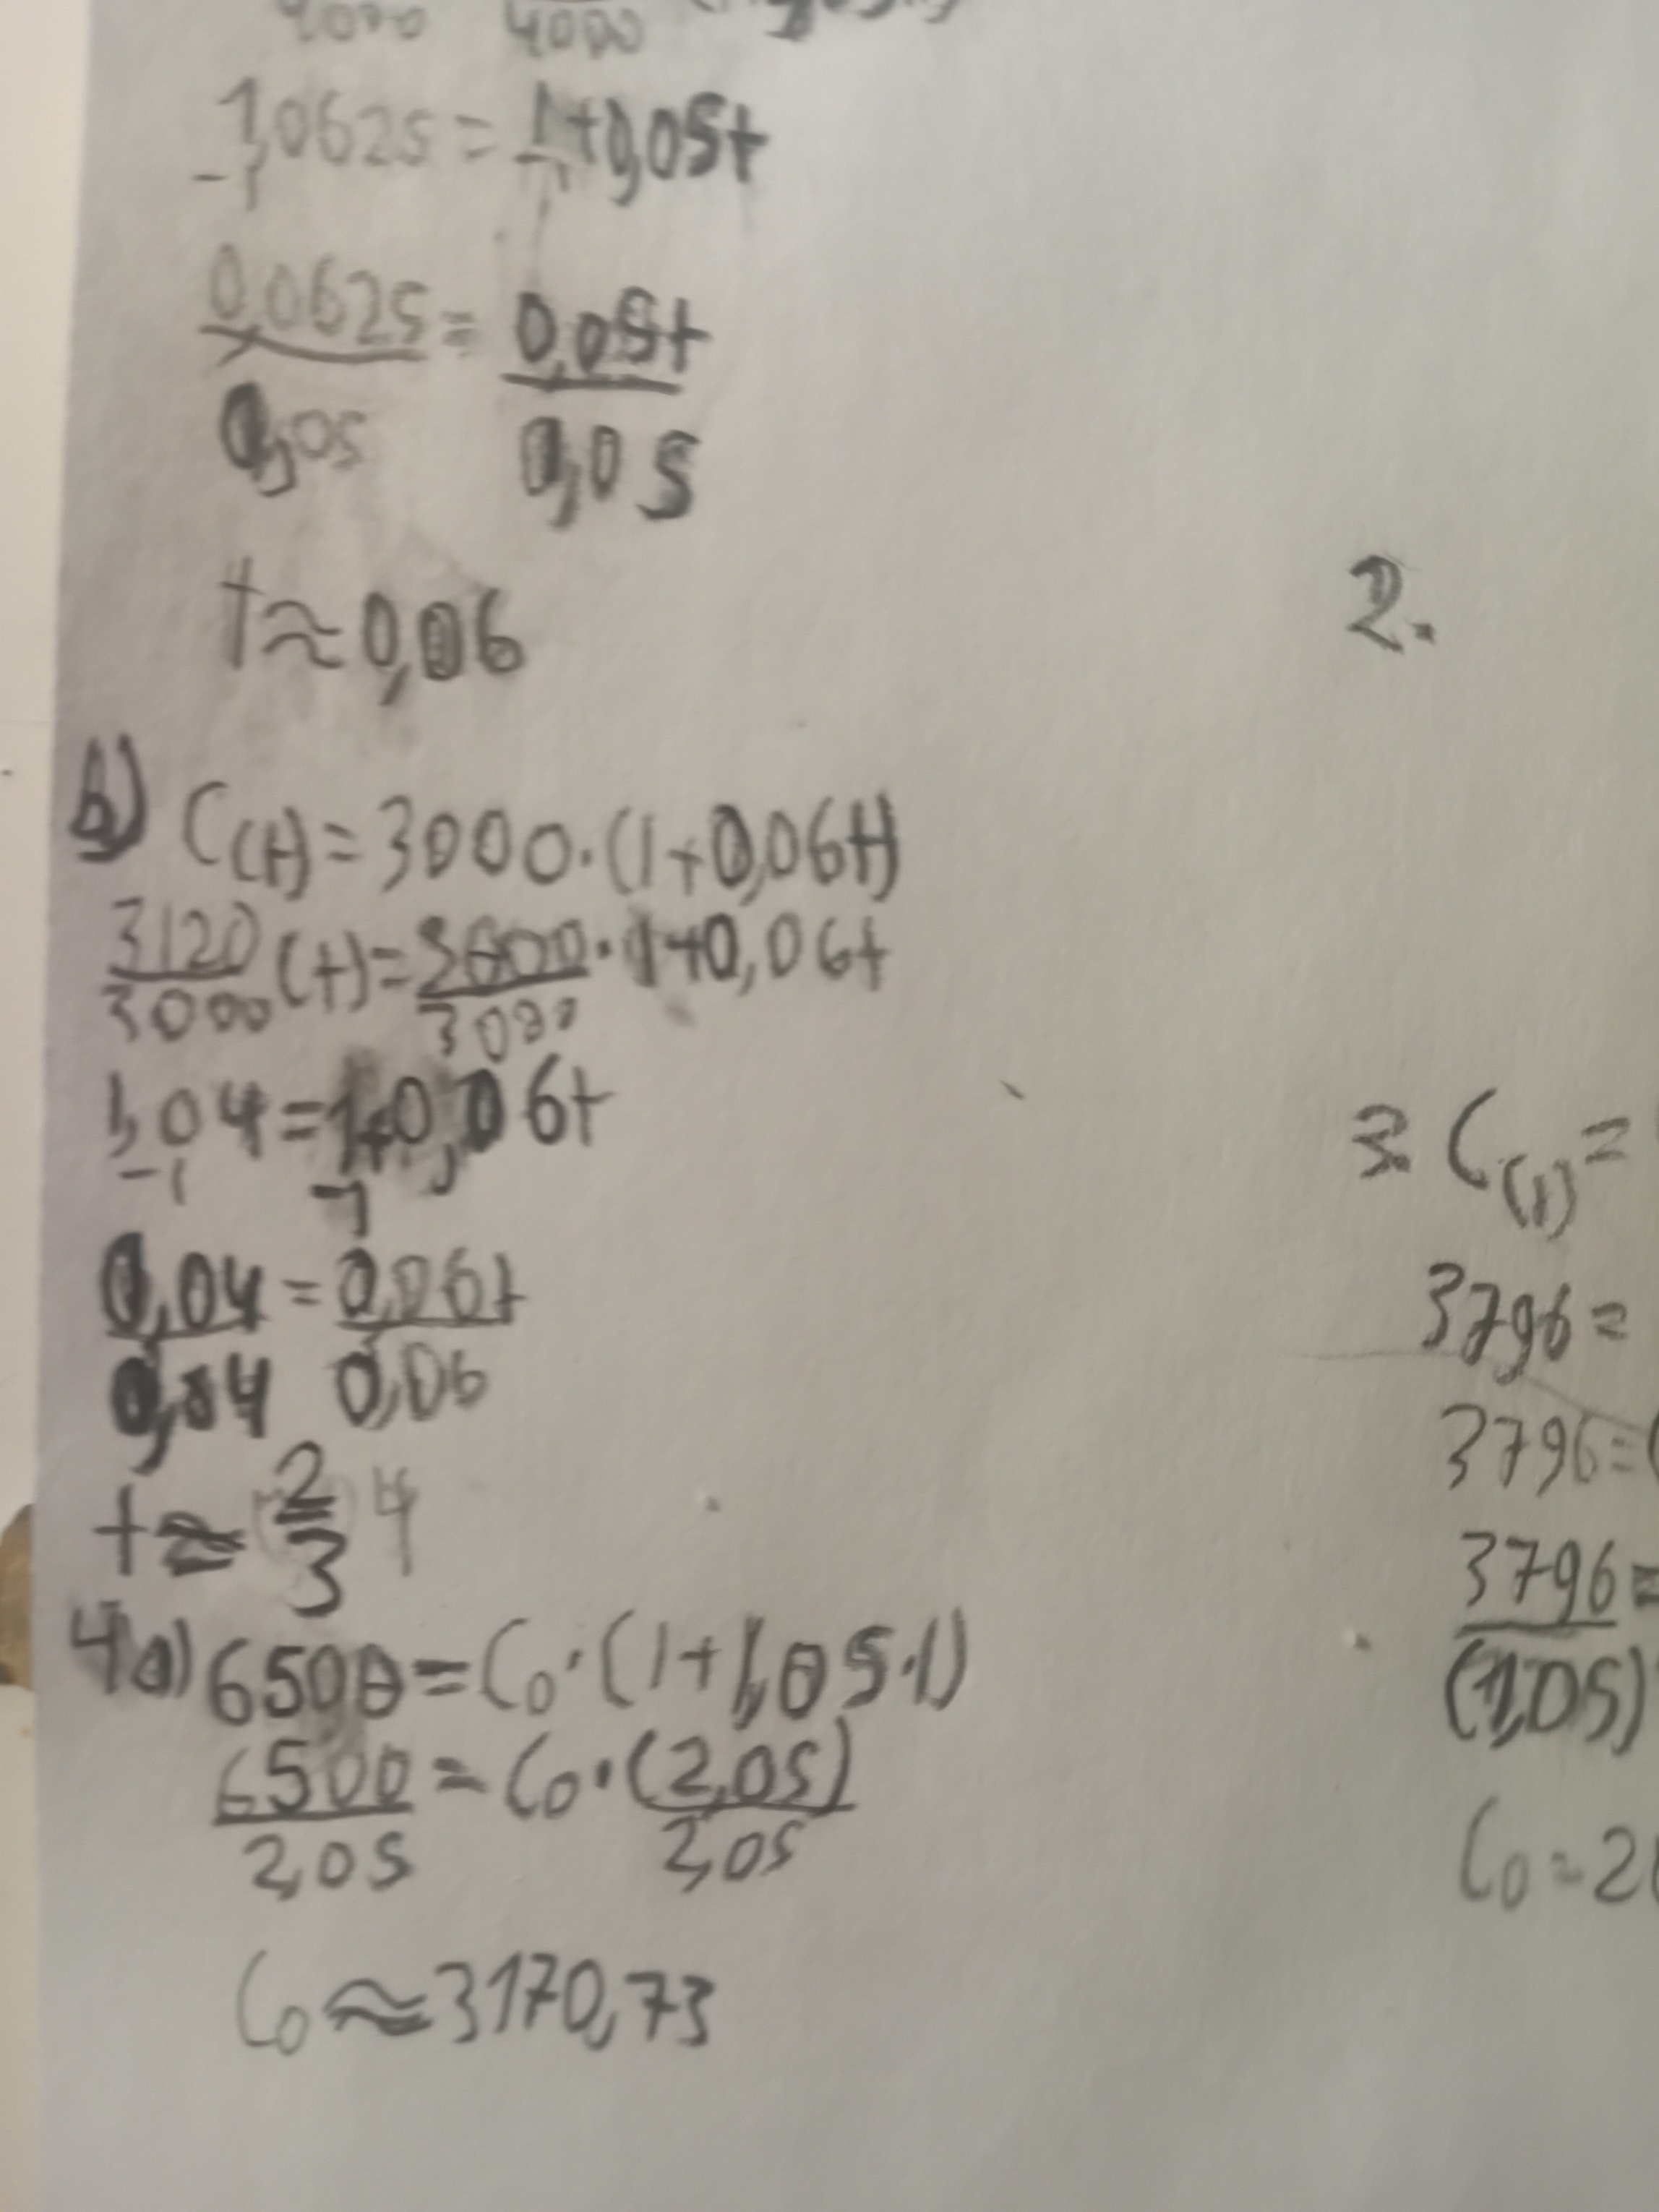 4000 4000
1,0625 = 1+0,05t
-1 -1
0,0625 = 0,05t
0,05 0,05
t≈0,06
b) C(t)=3000·(1+0,06t)
3120 (t)= 3000 ·1+0,06t
3000 3000
1,04=1+0,06t
-1 -1
0,04 = 0,06t
0,04 0,06
t≈ 2/3 4
4a) 6500=C0·(1+1,05·1)
6500 = C0·(2,05)
2,05 2,05
C0≈3170,73
2.
3. C(1)=
3796=
3796=(
3796=
(1,05)
C0=2